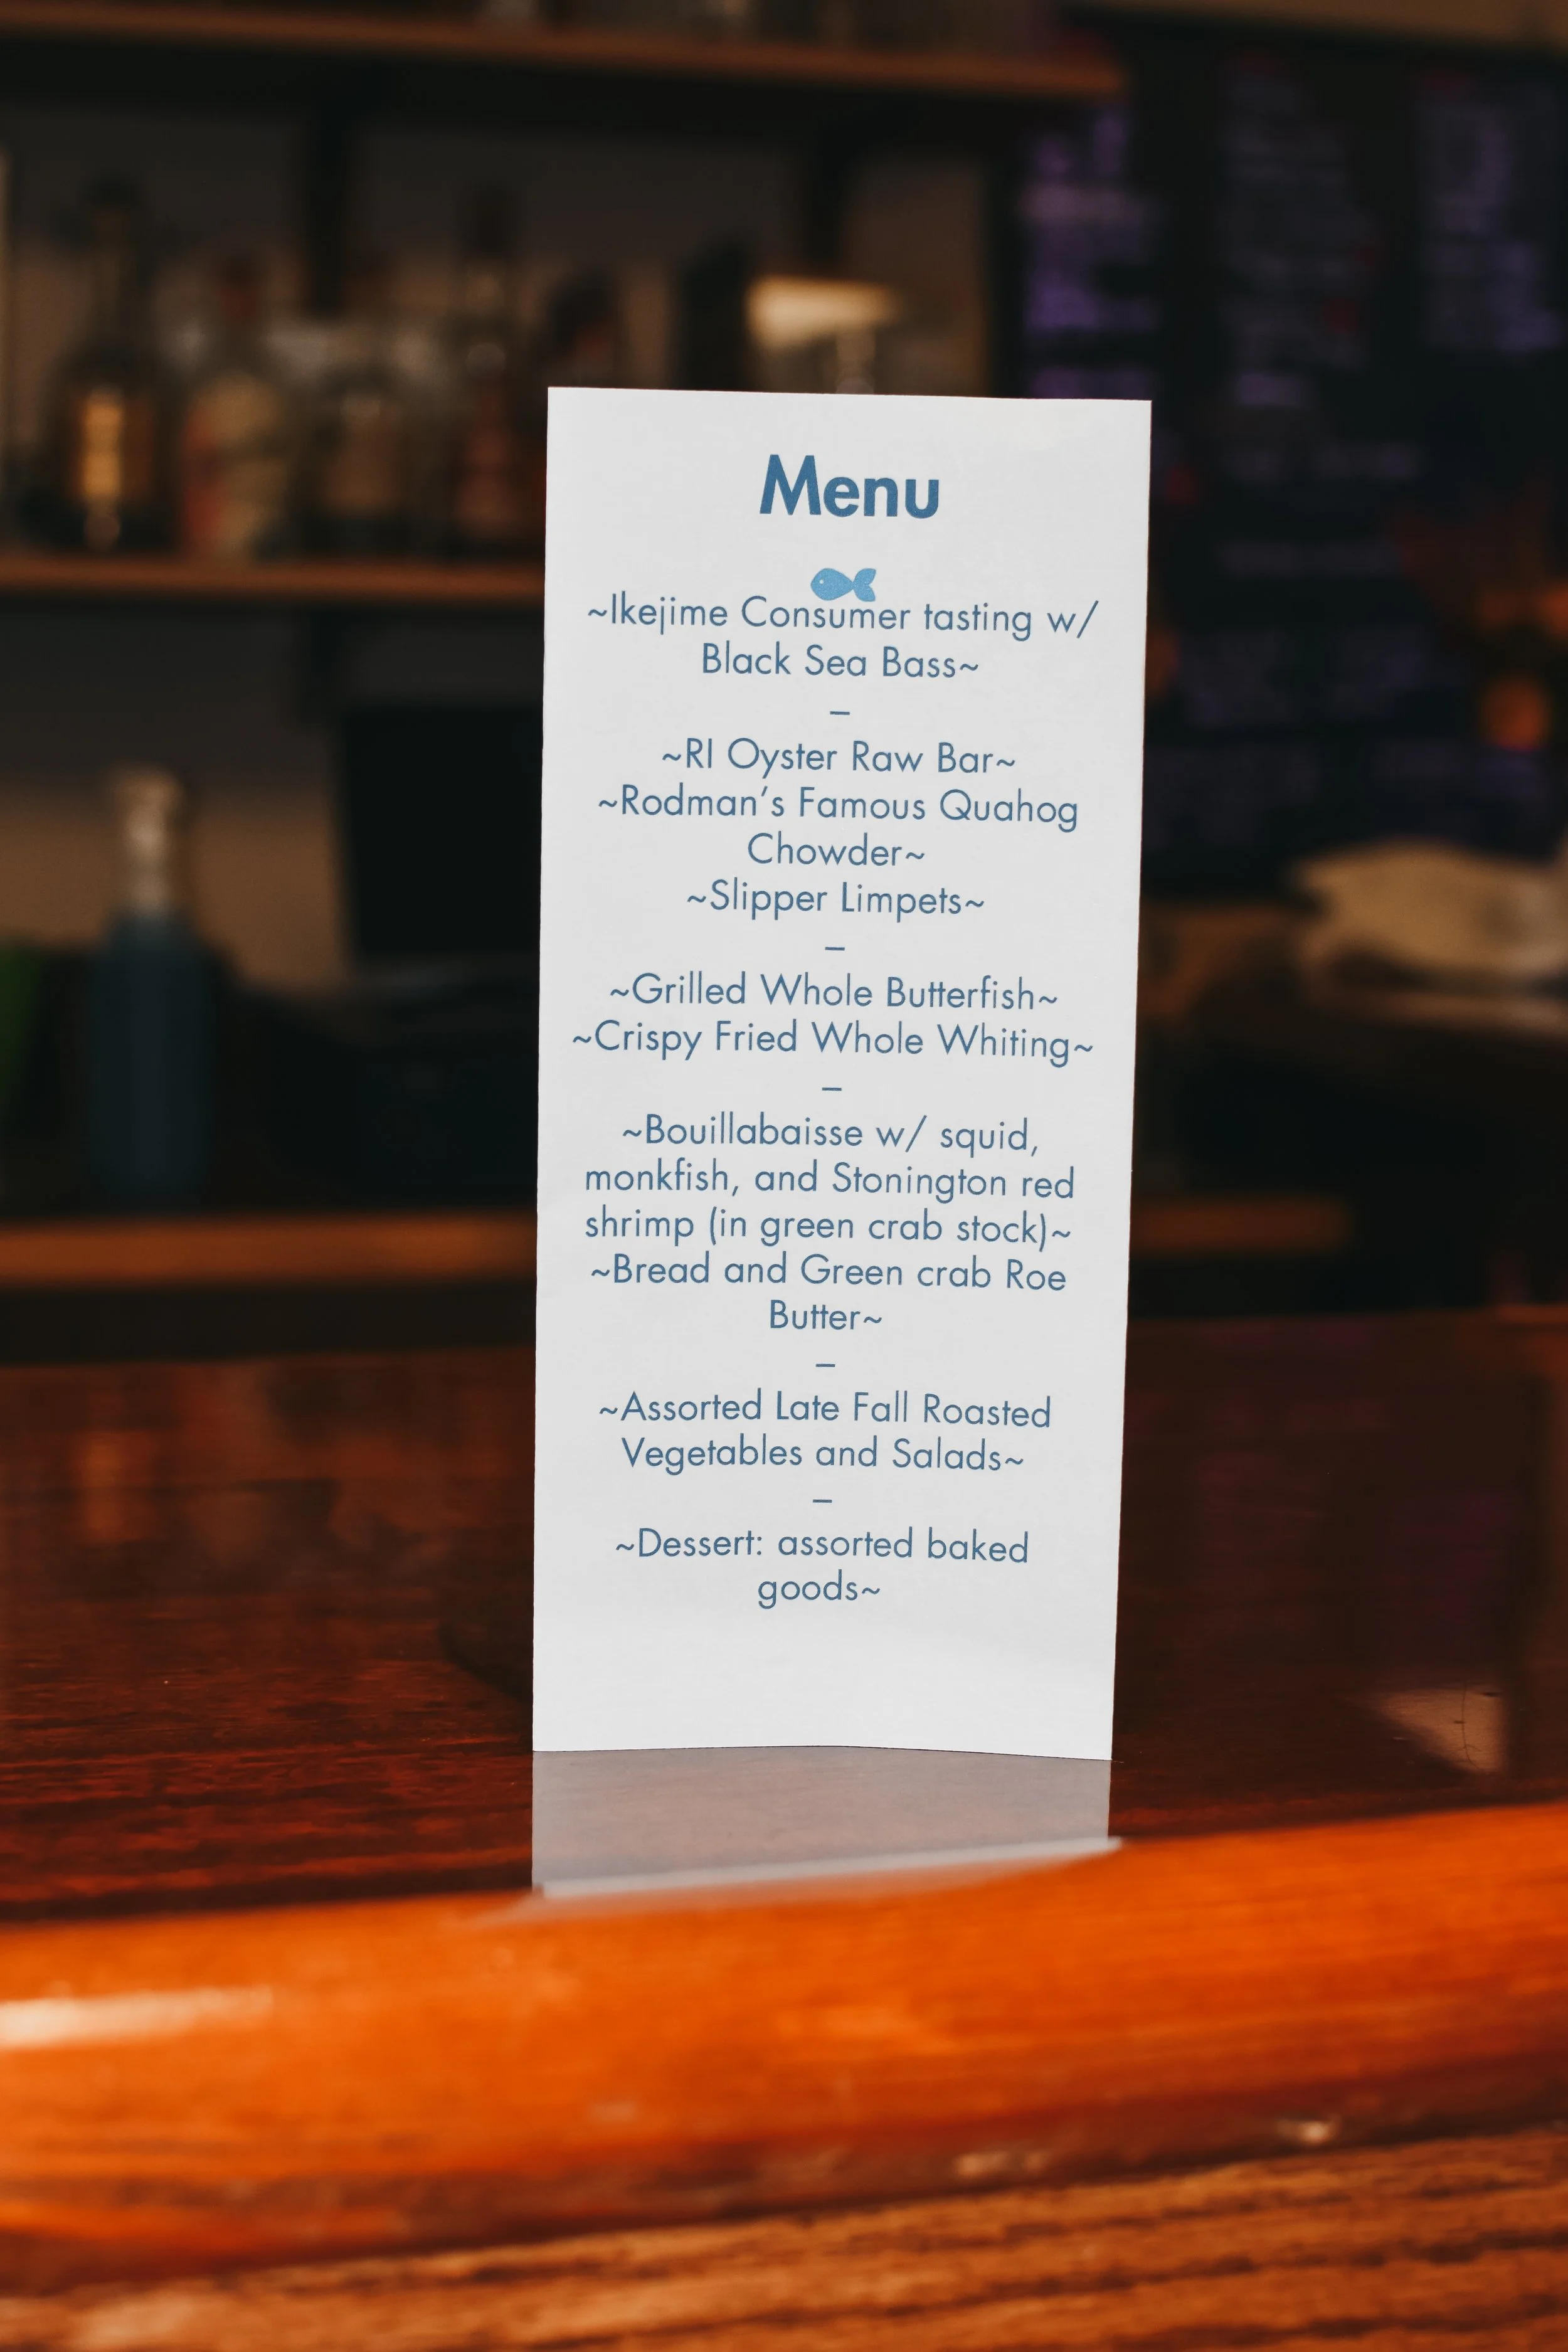 Menu
~Ikejime Consumer tasting w/
Black Sea Bass~
–
~RI Oyster Raw Bar~
~Rodman's Famous Quahog
Chowder~
~Slipper Limpets~
–
~Grilled Whole Butterfish~
~Crispy Fried Whole Whiting~
–
~Bouillabaisse w/ squid,
monkfish, and Stonington red
shrimp (in green crab stock)~
~Bread and Green crab Roe
Butter~
–
~Assorted Late Fall Roasted
Vegetables and Salads~
–
~Dessert: assorted baked
goods~